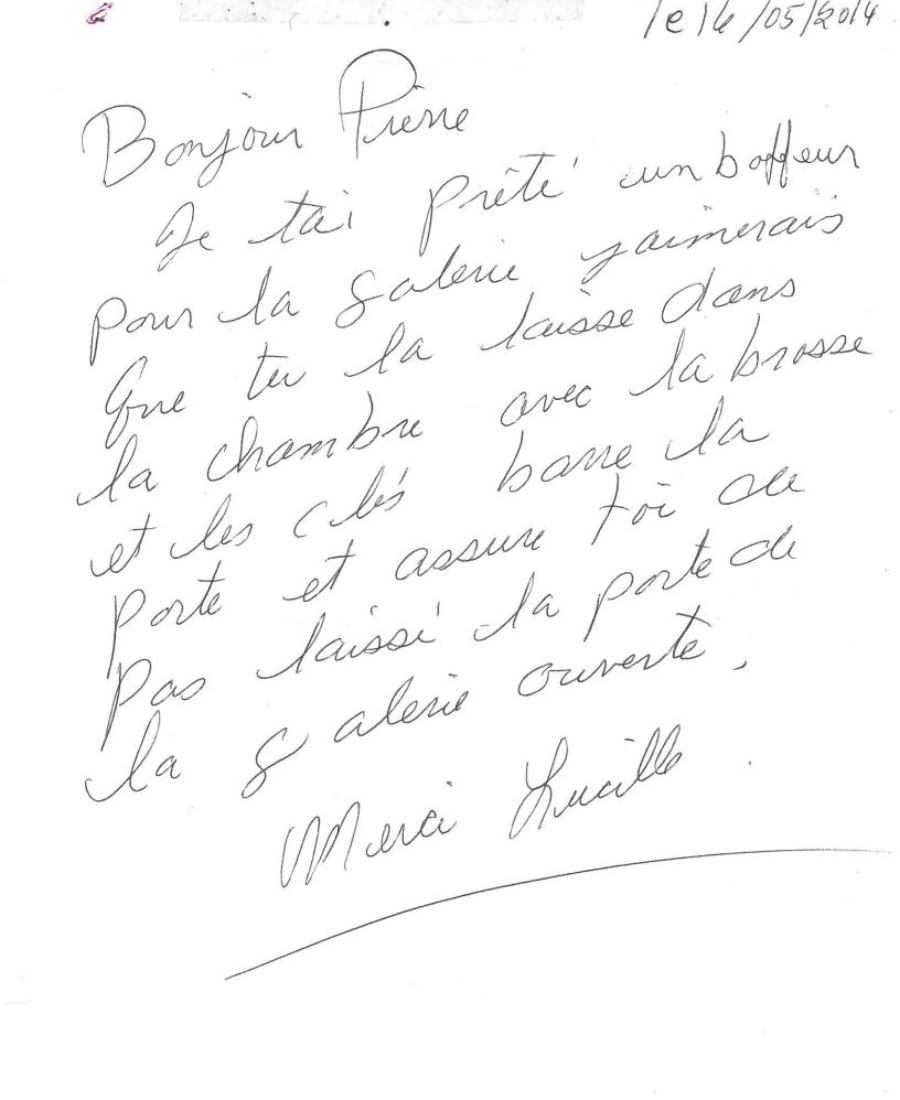 le 16/05/2014
Bonjour Pierre
Je tai prêté un boffeur
pour la galerie jaimerais
que tu la laisse dans
la chambre avec la brosse
et les clés barre la
porte et assure toi de
pas laissé la porte de
la galerie ouverte.
Merci Lucille